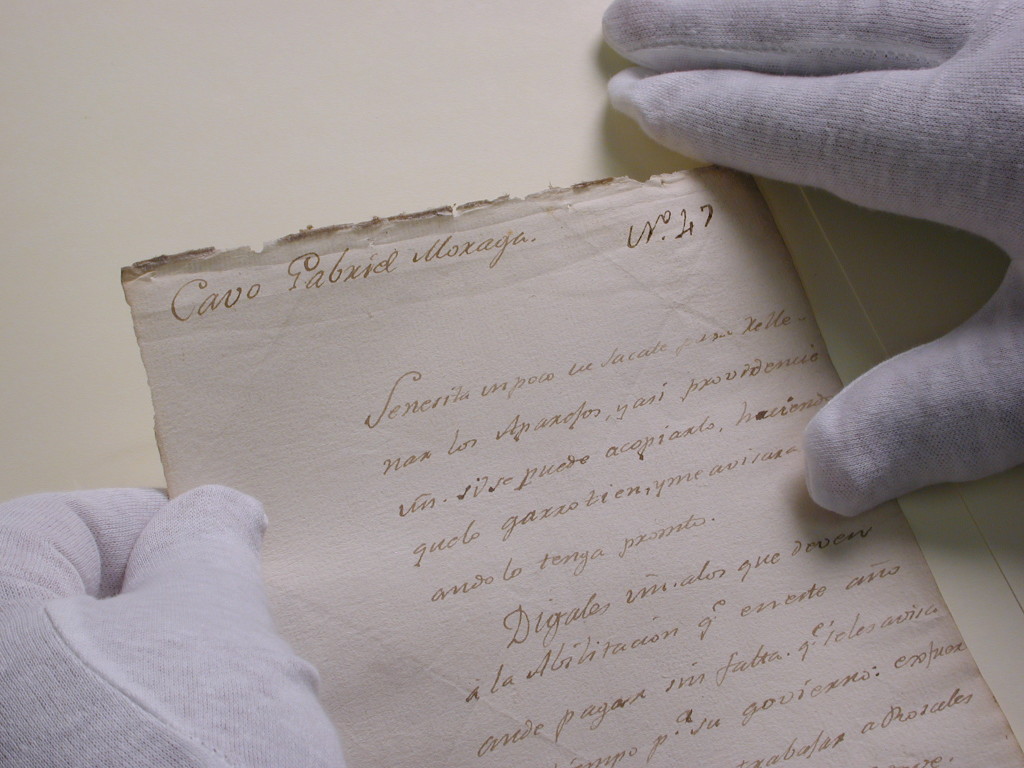 Cavo Gabriel Moxaga. Nº. 47
Senesita un poco de Sacate para Relle-
nar los Aparejos, y asi providencie
vm. si se puede acopiarlo, haciendo
quelo garroteen, y me avisara
ando lo tenga pronto.
Digales vm. alos que deven
á la Abilitacion qe. eneste año
ande pagar sin falta. qe. seles avisa
empo pª. su govierno:
trabajar a Rosales